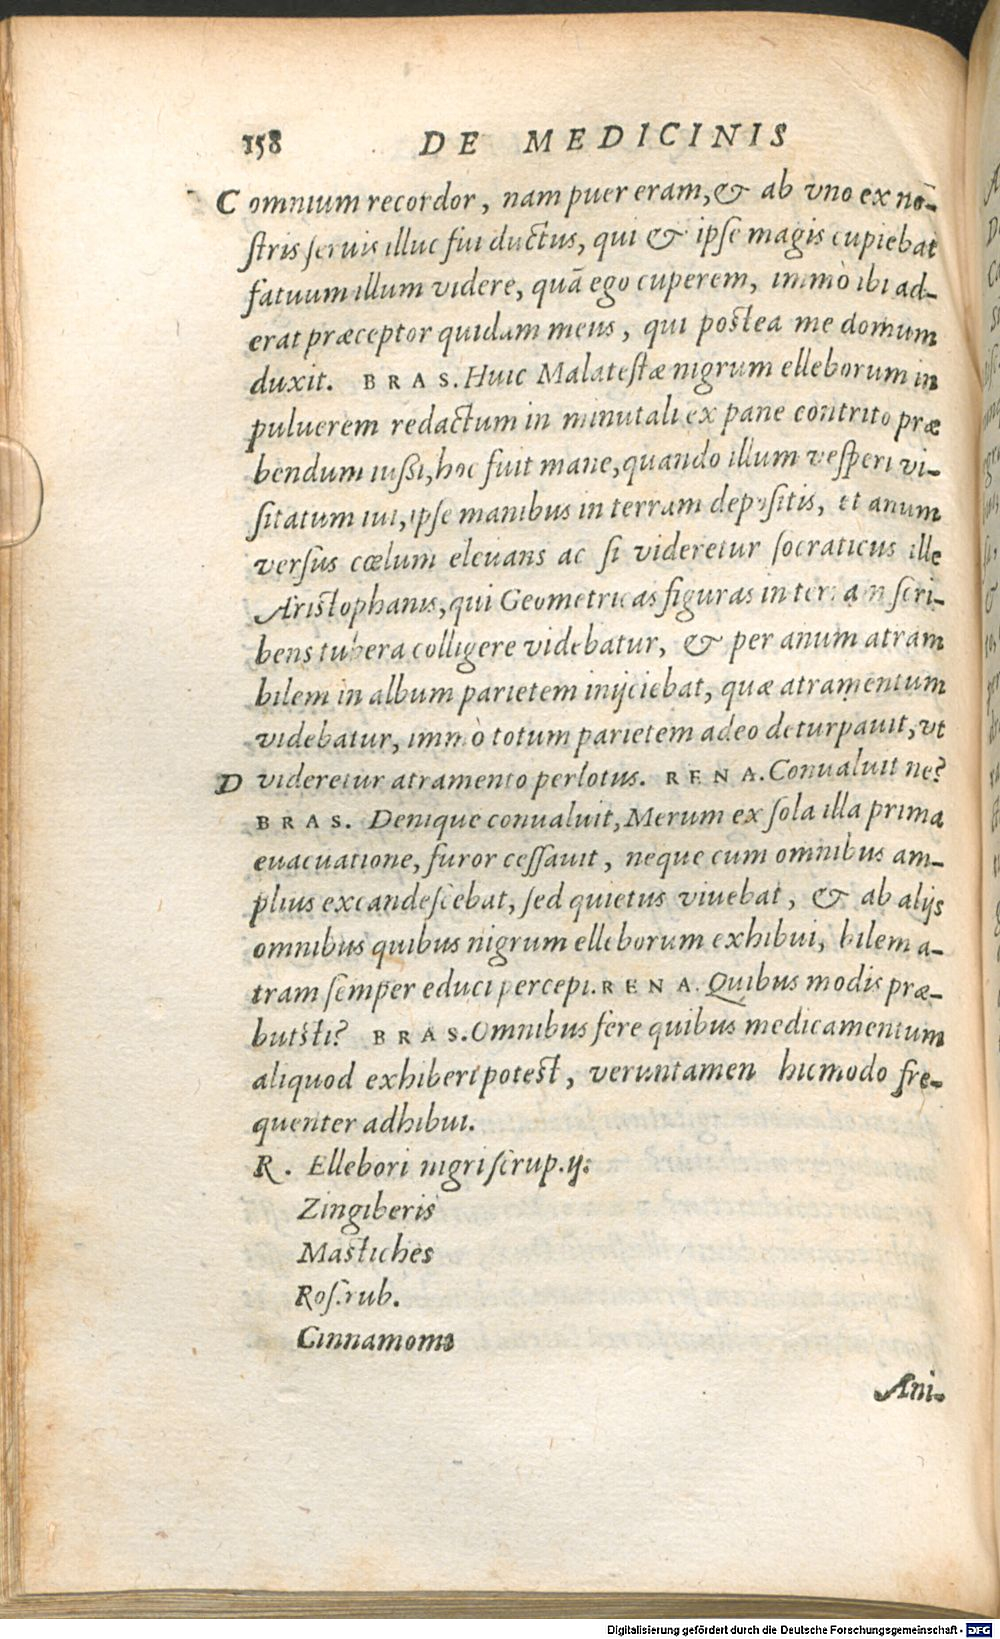 158 DE MEDICINIS
C omnium recordor, nam puer eram, & ab vno ex no-
ſtris ſeruis illuc fui ductus, qui & ipſe magis cupiebat
fatuum illum videre, quā ego cuperem, immò ibi ad-
erat præceptor quidam meus, qui poſtea me domum
duxit. BRAS. Huic Malateſtæ nigrum elleborum in
puluerem redactum in minutali ex pane contrito præ
bendum iußi, hoc fuit mane, quando illum veſperi vi-
ſitatum iui, ipſe manibus in terram depoſitis, et anum
verſus cœlum eleuans ac ſi videretur ſocraticus ille
Ariſtophanis, qui Geometricas figuras in terram ſcri-
bens tubera colligere videbatur, & per anum atram
bilem in album parietem inijciebat, quæ atramentum
videbatur, immò totum parietem adeo deturpauit, vt
D videretur atramento perlotus. RENA. Conualuit ne?
BRAS. Denique conualuit, Merum ex ſola illa prima
euacuatione, furor ceſſauit, neque cum omnibus am-
plius excandeſcebat, ſed quietus viuebat, & ab alijs
omnibus quibus nigrum elleborum exhibui, bilem a-
tram ſemper educi percepi. RENA. Quibus modis præ-
buiſti? BRAS. Omnibus fere quibus medicamentum
aliquod exhiberi poteſt, veruntamen hic modo fre-
quenter adhibui.
R. Ellebori nigri ſcrup. ij:
Zingiberis
Maſtiches
Roſ. rub.
Cinnamomi
Ani-
Digitalisierung gefördert durch die Deutsche Forschungsgemeinschaft - DFG